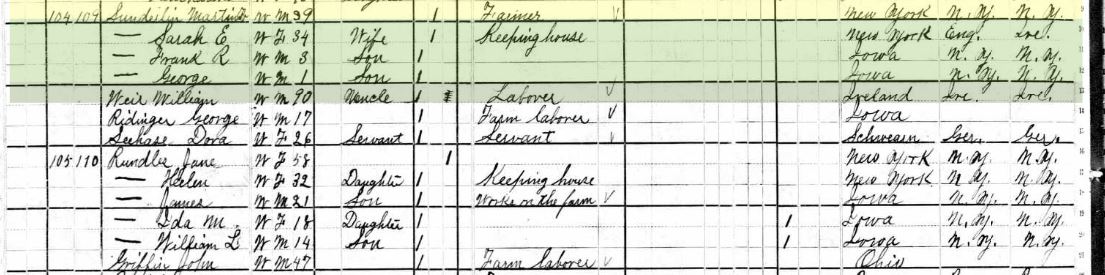 104 109 Martin W M 39 1 Farmer New York N. Y. N. Y.
— Sarah E W F 34 Wife 1 Keeping house New York Eng. Ire.
— Frank R W M 3 Son 1 Iowa N. Y. N. Y.
— George W M 1 Son 1 Iowa N. Y. N. Y.
Weir William W M 90 Uncle 1 Laborer Ireland Ire. Ire.
Ridinger George W M 17 1 Farm laborer Iowa
Dora W F 26 Servant 1 Servant Ger. Ger.
105 110 Rundle Jane W F 58 1 New York N. Y. N. Y.
— Helen W F 32 Daughter 1 Keeping house New York N. Y. N. Y.
— James W M 21 Son 1 Works on the farm Iowa N. Y. N. Y.
— Ida M. W F 18 Daughter 1 1 Iowa N. Y. N. Y.
— William L W M 14 Son 1 1 Iowa N. Y. N. Y.
Griffin John W M 47 1 Farm laborer Ohio